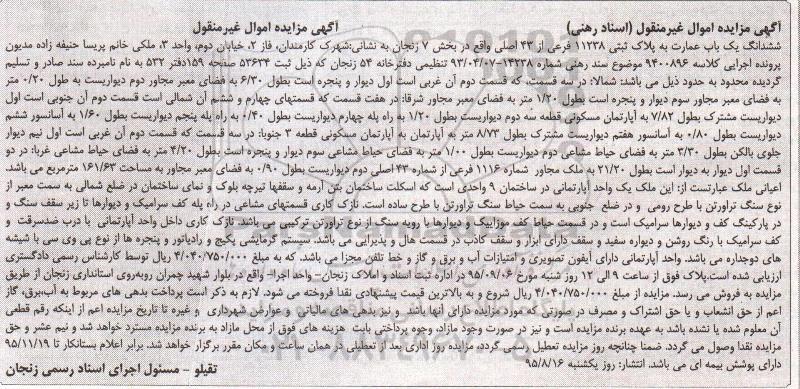 آگهی مزایده اموال غیرمنقول (اسناد رهنی) آگهی مزایده اموال غیرمنقول
ششدانگ یک باب عمارت به پلاک ثبتی ۱۱۲۳۸ فرعی از ۴۳ اصلی واقع در بخش ۷ زنجان به نشانی:شهرک کارمندان، فاز ۲، خیابان دوم، واحد ۳، ملکی خانم پریسا حنیفه زاده مدیون
پرونده اجرایی کلاسه ۹۴۰۰۸۹۶ موضوع سند رهنی شماره ۱۴۲۳۸-۹۳/۰۴/۰۷ تنظیمی دفترخانه ۵۴ زنجان که ذیل ثبت ۵۳۶۳۴ صفحه ۱۵۹دفتر ۵۳۲ به نام نامبرده سند صادر و تسلیم
گردیده محدود به حدود ذیل می باشد: شمالا: در سه قسمت که قسمت دوم آن غربی است اول دیوار و پنجره است بطول ۶/۳۰ به فضای معبر مجاور دوم دیواریست به طول ۰/۲۰ متر
به فضای معبر مجاور سوم دیوار و پنجره است بطول ۱/۲۰ متر به فضای معبر مجاور شرقا: در هفت قسمت که قسمتهای چهارم و ششم آن شمالی است قسمت دوم آن جنوبی است اول
دیواریست مشترک بطول ۷/۸۲ به آپارتمان مسکونی قطعه سه دوم دیواریست بطول ۱/۲۰ به راه پله چهارم دیواریست بطول ۰/۴۰ به راه پله پنجم دیواریست بطول ۱/۶۰ به آسانسور ششم
دیواریست بطول ۰/۸۰ به آسانسور هفتم دیواریست مشترک بطول ۸/۷۳ متر به آپارتمان به آپارتمان مسکونی قطعه ۳ جنوبا: در سه قسمت که قسمت دوم آن غربی است اول نیم دیوار
جلوی بالکن بطول ۳/۳۰ متر به فضای حیاط مشاعی دوم دیواریست بطول ۱/۰۰ متر به فضای حیاط مشاعی سوم دیوار و پنجره است بطول ۴/۲۰ متر به فضای حیاط مشاعی غربا: در دو
قسمت اول دیوار به دیوار است بطول ۲۱/۲۰ به ملک مجاور شماره ۱۱۱۶ فرعی از شماره ۴۳ اصلی دوم دیواریست بطول ۰/۹۰ به فضای معبر مجاور به مساحت ۱۶۱/۶۳ مترمربع می باشد.
اعیانی ملک عبارتست از: این ملک یک واحد آپارتمانی در ساختمان ۹ واحدی است که اسکلت ساختمان بتن آرمه و سقفها تیرچه بلوک و نمای ساختمان در ضلع شمالی به سمت معبر از
نوع سنگ تراورتن با طرح رومی و در ضلع جنوبی به سمت حیاط سنگ تراورتن با طرح ساده است. نازک کاری قسمتهای مشاعی در راه پله کف سرامیک و دیوارها تا زیر سقف سنگ و
در پارکینگ کف و دیوارها سرامیک است و در قسمت حیاط کف موزاییک و دیوارها با رویه سنگ از نوع تراورتن ترکیبی می باشد. نازک کاری داخل واحد آپارتمانی با درب ضدسرقت و
کف سرامیک با رنگ روشن و دیواره سفید و سقف دارای ابزار و سقف کاذب در قسمت هال و پذیرایی می باشد. سیستم گرمایشی پکیج و رادیاتور و پنجره ها از نوع پی وی سی با شیشه
های دوجداره می باشد. واحد آپارتمانی دارای آیفون تصویری و امتیازات آب و برق و گاز و خط تلفن مجزا می باشد. که به مبلغ ۴/۰۴۰/۷۵۰/۰۰۰ ریال توسط کارشناس رسمی دادگستری
ارزیابی شده است.پلاک فوق از ساعت ۹ الی ۱۲ روز شنبه مورخ ۹۵/۰۹/۰۶ در اداره ثبت اسناد و املاک زنجان- واحد اجرا- واقع در بلوار شهید چمران روبه‌روی استانداری زنجان از طریق
مزایده به فروش می رسد. مزایده از مبلغ ۴/۰۴۰/۷۵۰/۰۰۰ ریال شروع و به بالاترین قیمت پیشنهادی نقدا فروخته می شود. لازم به ذکر است پرداخت بدهی های مربوط به آب،برق، گاز
اعم از حق انشعاب و یا حق اشتراک و مصرف در صورتی که موردمزایده دارای آنها باشد و نیز بدهی های مالیاتی و عوارض شهرداری و غیره تا تاریخ مزایده اعم از اینکه رقم قطعی
آن معلوم شده یا نشده باشد به عهده برنده مزایده است و نیز در صورت وجود مازاد، وجوه پرداختی بابت هزینه های فوق از محل مازاد به برنده مزایده مسترد خواهد شد و نیم عشر و حق
مزایده نقدا وصول می گردد. ضمنا چنانچه روز مزایده تعطیل رسمی گردد، مزایده روز اداری بعد از تعطیلی در همان ساعت و مکان مقرر برگزار خواهد شد. برابر اعلام بستانکار تا ۹۵/۱۱/۱۹
دارای پوشش بیمه ای می باشد. انتشار: روز یکشنبه ۹۵/۸/۱۶ تقیلو - مسئول اجرای اسناد رسمی زنجان